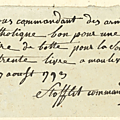 ous commandant des arm
tholique bon pour une
re de botte pour la
trente livre a moul
aoust 793
stofflet comman